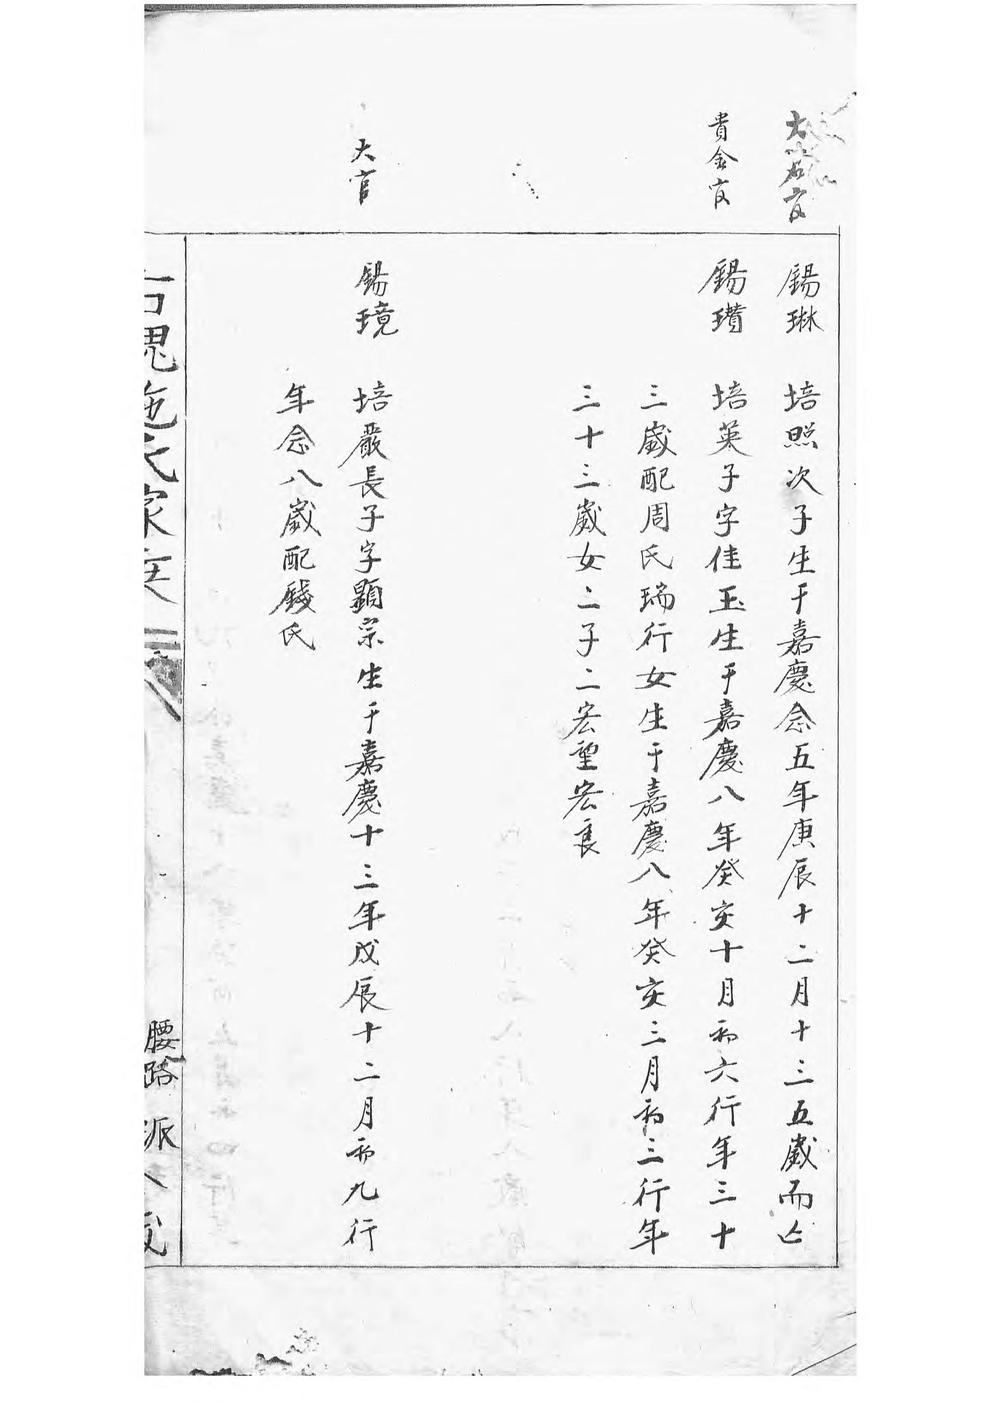 貴金
大官
錫琳 培照次子生于嘉慶念五年庚辰十二月十三五歲而亡
錫瓚 培英子字佳玉生于嘉慶八年癸亥十月初六行年三十
三歲配周氏瑞行女生于嘉慶八年癸亥三月初三行年
三十三歲女二子二宏望宏良
錫璄 培嚴長子字顯宗生于嘉慶十三年戊辰十二月初九行
年念八歲配錢氏
施氏家
腰路派